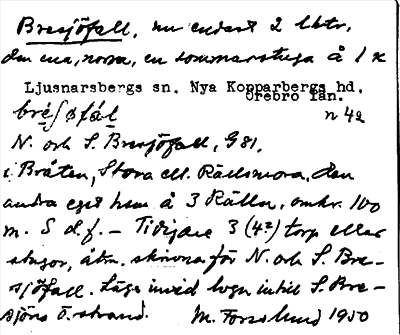 Bresjöfall, nu endast 2 lktr,
den ena, norra, en sommarstuga å 1 x
Ljusnarsbergs sn. Nya Kopparbergs hd.
Örebro län.
bré∫øfál n 42
N. och S. Bresjöfall, G81,
i Bråten, Stora ell. Rädsmora, den
andra eget hem å 3 Rällen, omkr. 100
m. S d.f. – Tidigare 3 (4?) torp eller
stugor, åtm. skrivna för N. och S. Bre-
sjöfall. Låga invid byn intill S. Bre-
sjöns ö. strand. M. Forslund 1950